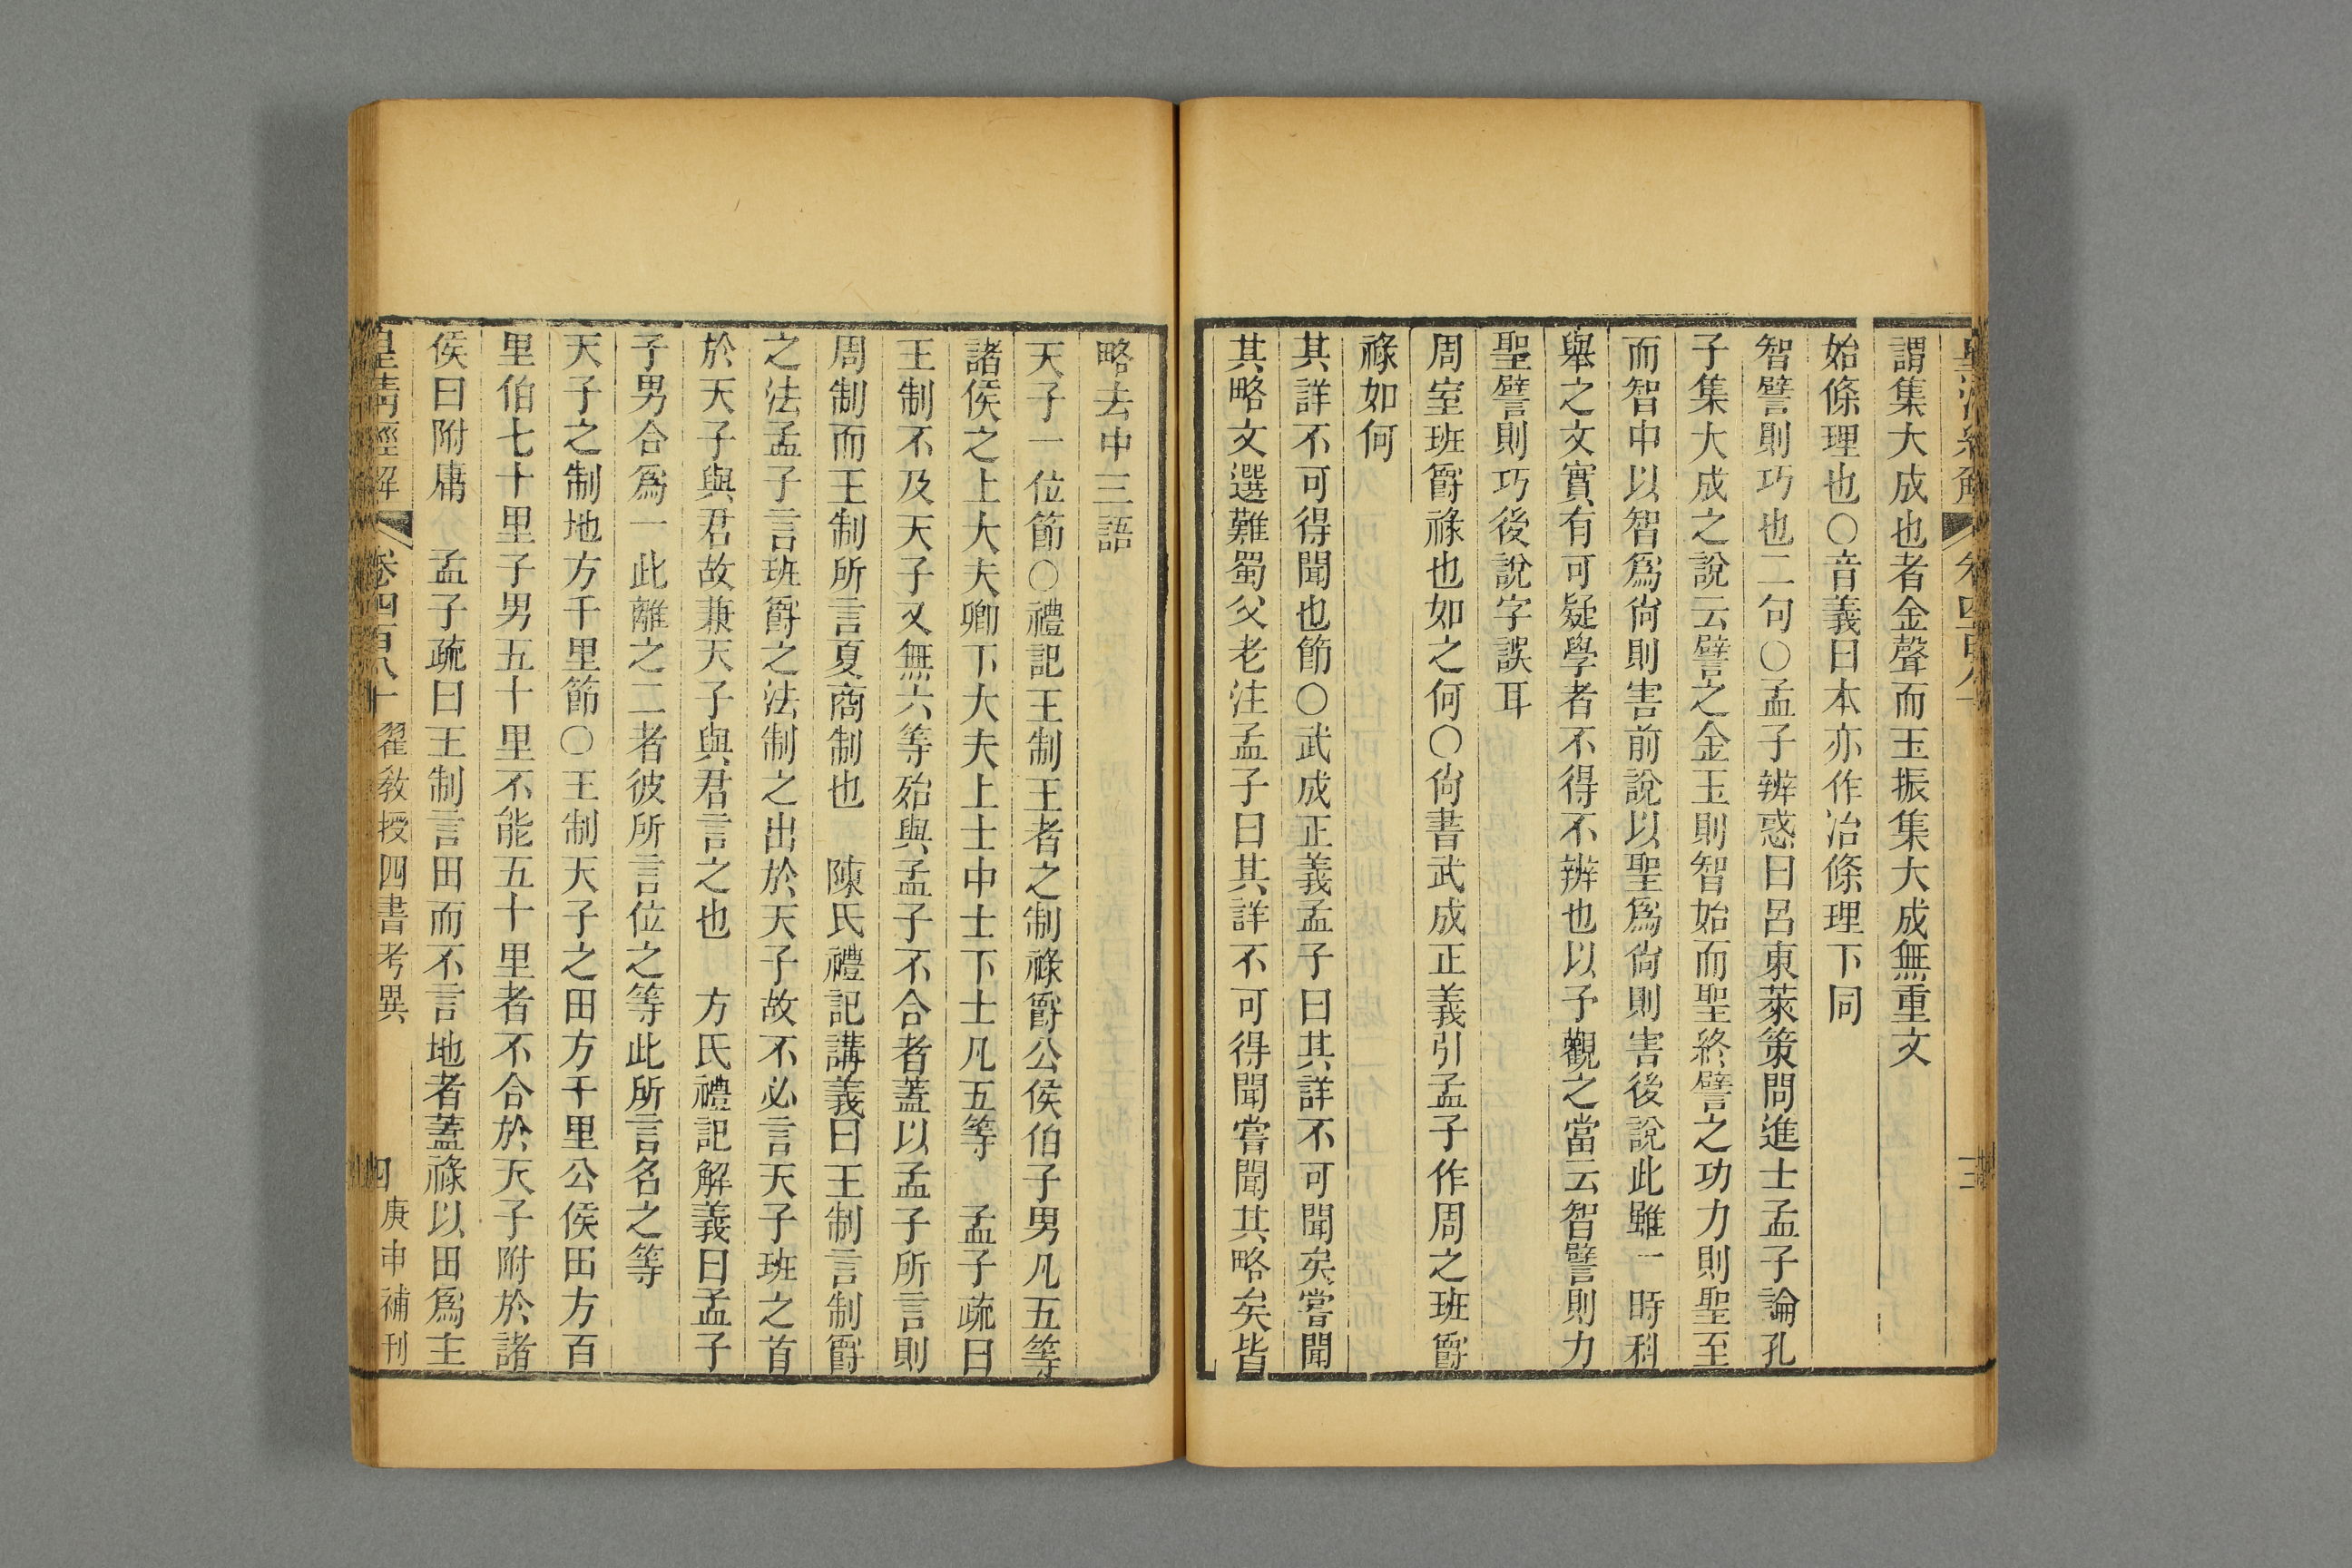 謂集大成也者金聲而玉振集大成無重文
始條理也〇音義曰本亦作治條理下同
智譬則巧也二句〇孟子辨惑曰呂東萊策問進士孟子論孔
子集大成之說云譬之金玉則智始而聖終譬之功力則聖至
而智中以智爲尙則害前說以聖爲尙則害後說此雖一時科
舉之文實有可疑學者不得不辨也以予觀之當云智譬則力
聖譬則巧後說字誤耳
周室班爵祿也如之何〇尙書武成正義引孟子作周之班爵
祿如何
其詳不可得聞也節〇武成正義孟子曰其詳不可聞矣嘗聞
其略文選難蜀父老注孟子曰其詳不可得聞嘗聞其略矣皆
略去中三語
天子一位節〇禮記王制王者之制祿爵公侯伯子男凡五等
諸侯之上大夫卿下大夫上士中士下士凡五等　孟子疏曰
王制不及天子又無六等殆與孟子不合者蓋以孟子所言則
周制而王制所言夏商制也　陳氏禮記講義曰王制言制爵
之法孟子言班爵之法制之出於天子故不必言天子班之首
於天子與君故兼天子與君言之也　方氏禮記解義曰孟子
子男合爲一此離之二者彼所言位之等此所言名之等
天子之制地方千里節〇王制天子之田方千里公侯田方百
里伯七十里子男五十里不能五十里者不合於天子附於諸
侯曰附庸　孟子疏曰王制言田而不言地者蓋祿以田爲主
皇清經解 卷四百八十 翟教授四書考異 四 庚申補刊